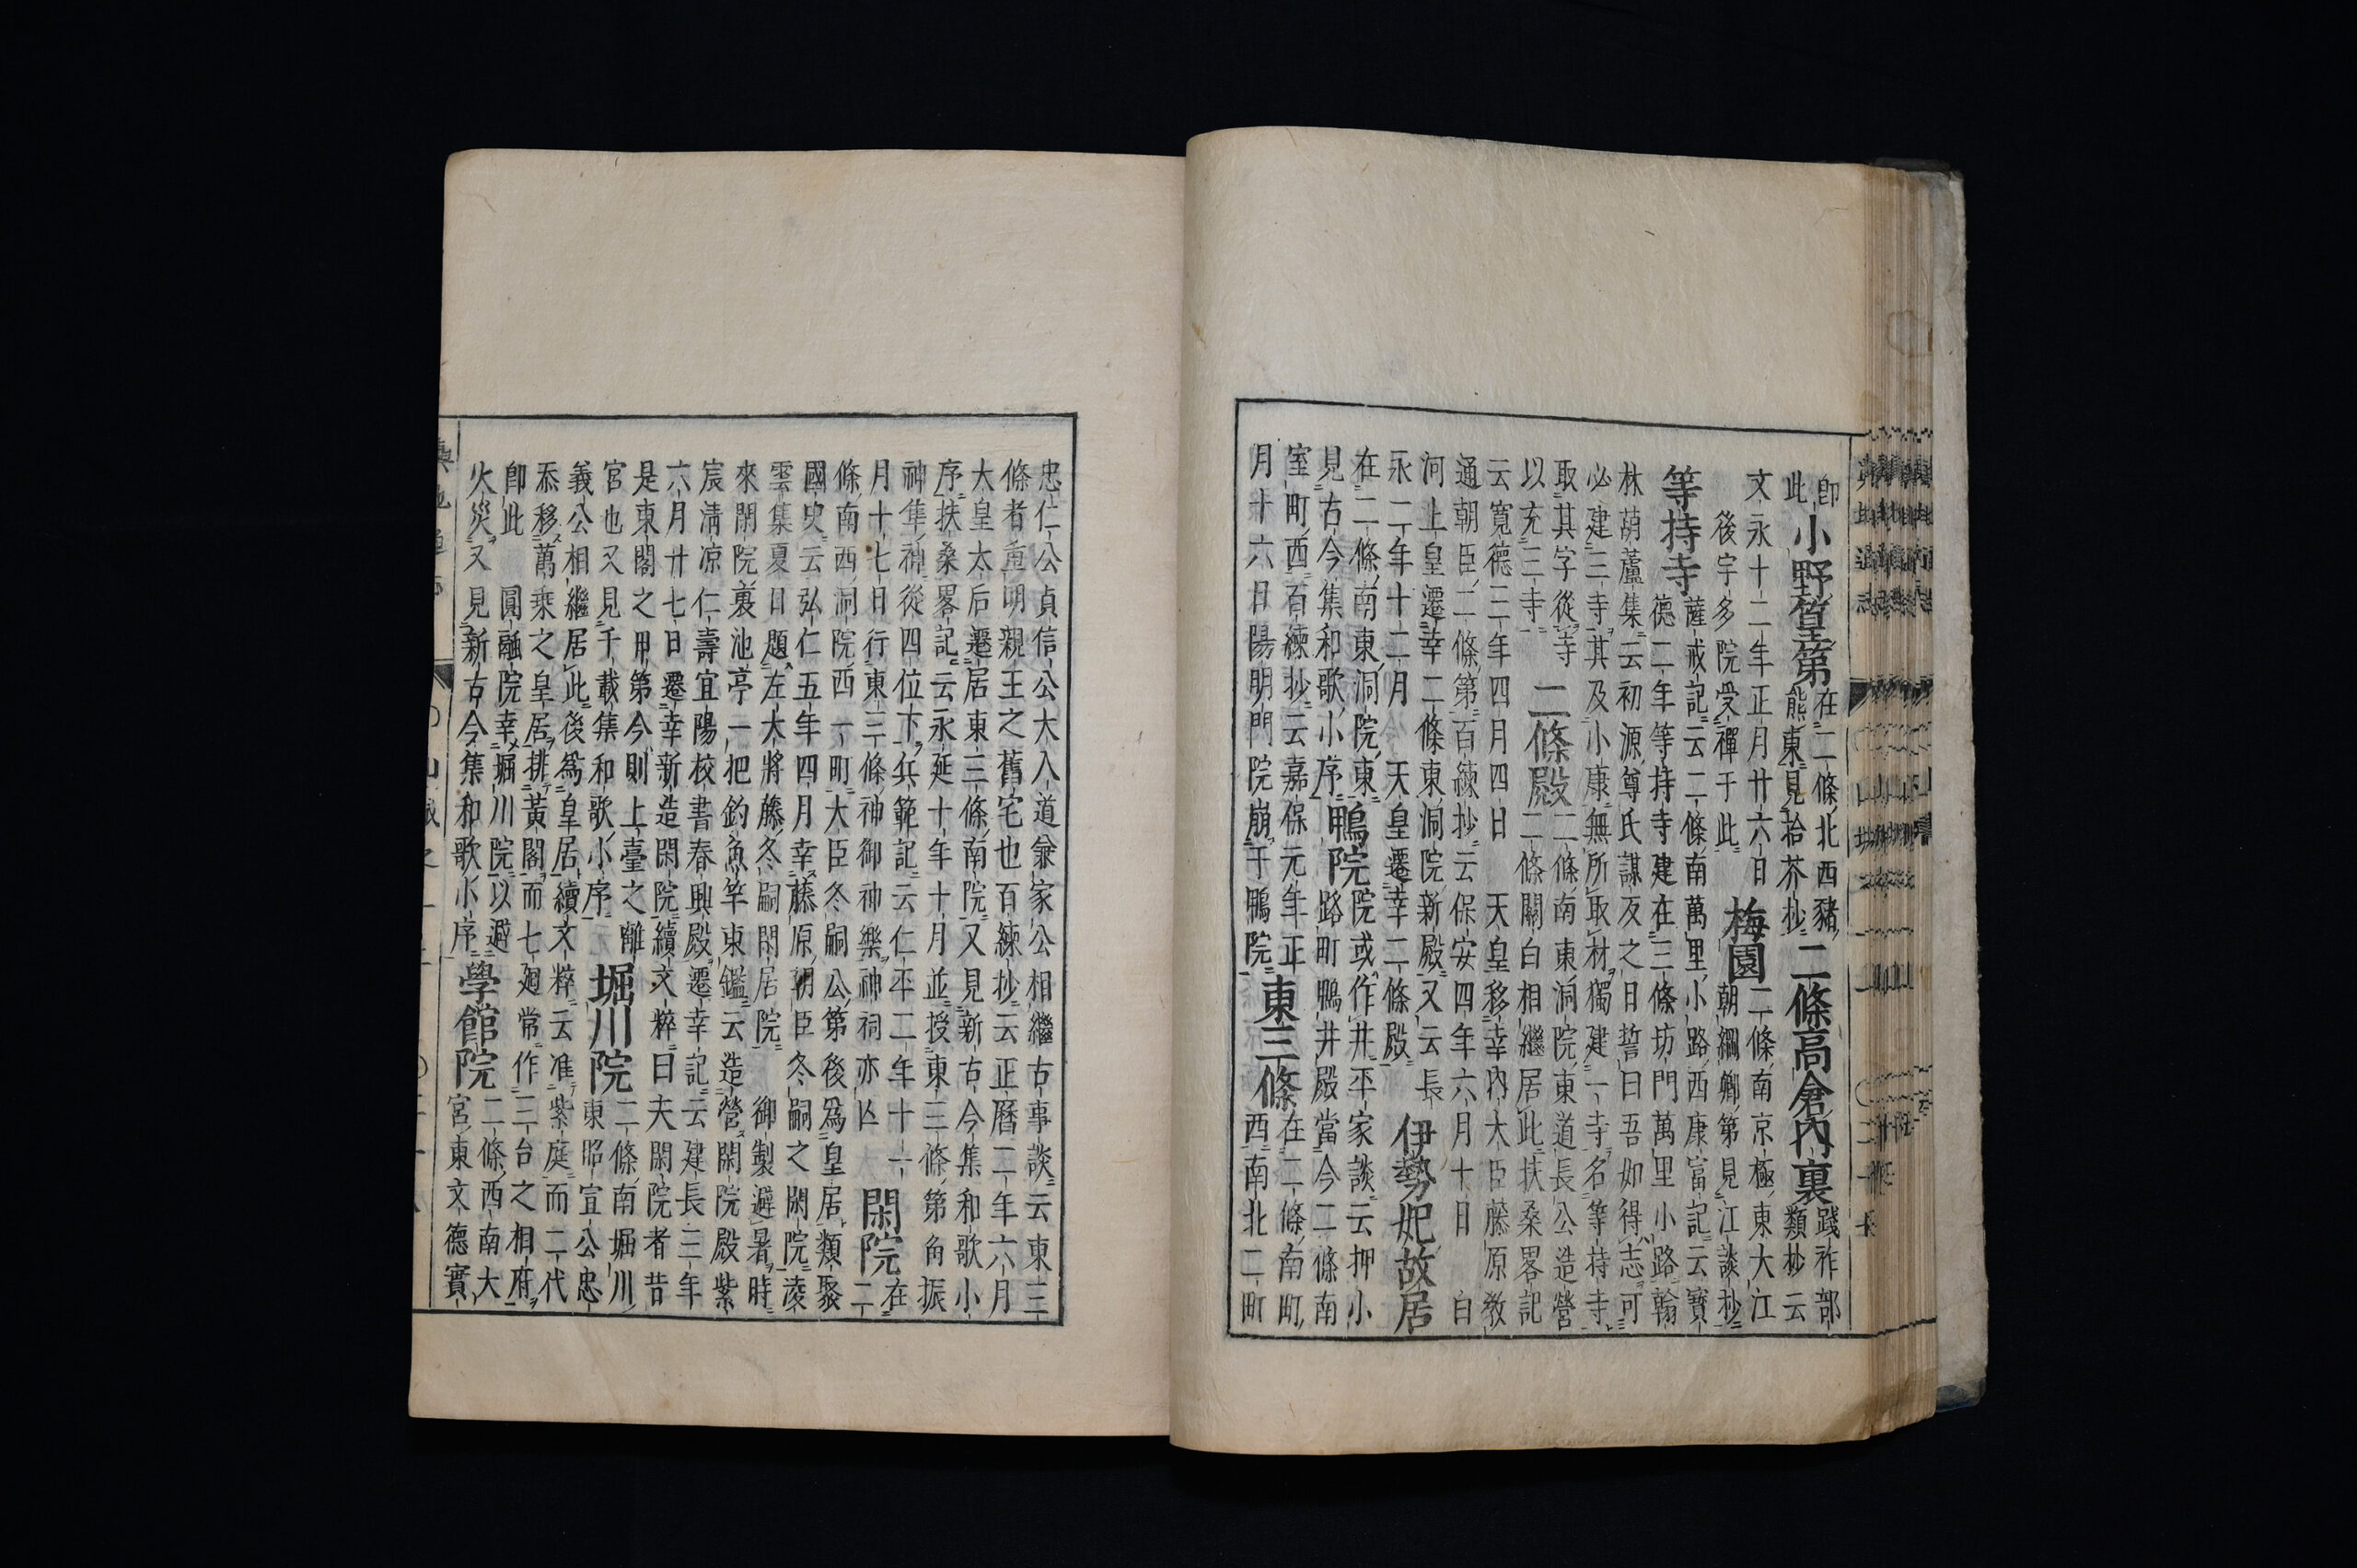 即此
小野篁第
在二條北西豬
熊東見拾芥抄
二條高倉內裏
踐祚部
類抄云
文永十二年正月廿六日
後宇多院受禪于此
梅園
二條南京極東大江
朝綱卿第見江談抄
等持寺
薩戒記云二條南萬里小路西康富記云寶
德二年等持寺建在三條坊門萬里小路翰
林葫蘆集云初源尊氏謀反之日誓曰吾如得志可
必建三寺其及小康無所取材獨建一寺名等持寺
取其字從寺
以充三寺
二條殿
二條南東洞院東道長公造營
二條關白相繼居此扶桑畧記
云寬德三年四月四日 天皇移幸內大臣藤原敎
通朝臣二條第百練抄云保安四年六月十日 白
河上皇遷幸二條東洞院新殿又云長
永二年十二月 天皇遷幸二條殿
伊勢妃故居
在二條南東洞院東
見古今集和歌小序
鴨院
院或作井平家談云押小
路町鴨井殿當今二條南
室町西百練抄云嘉保元年正
月十六日陽明門院崩于鴨院
東三條
在二條南町
西南北二町
忠仁公貞信公大入道兼家公相繼古事談云東三
條者重明親王之舊宅也百練抄云正曆二年六月
大皇太后遷居東三條南院又見新古今集和歌小
序扶桑畧記云永延十年十月並授東三條第角振
神隼神從四位下兵範記云仁平二年十一
月十七日行東三條神御神樂神祠亦亾
閑院
在
二
條南西洞院西一町大臣冬嗣公第後爲皇居類聚
國史云弘仁五年四月幸藤原朝臣冬嗣之閑院淩
雲集夏日題左大將藤冬嗣閑居院 御製避暑時
來閑院裏池亭一把釣魚竿東鑑云造營閑院殿紫
宸淸凉仁壽宜陽校書春興殿遷幸記云建長三年
六月廿七日遷幸新造閑院續文粹曰夫閑院者昔
是東閣之甲第今則上臺之離
宮也又見千載集和歌小序
堀川院
二條南堀川
東昭宣公忠
義公相繼居此後爲皇居續文粹云准紫庭而二代
忝移萬乘之皇居排黃閣而七廻常作三台之相府
卽此 圓融院幸堀川院以避
火災又見新古今集和歌小序
學館院
二條西南大
宮東文德實